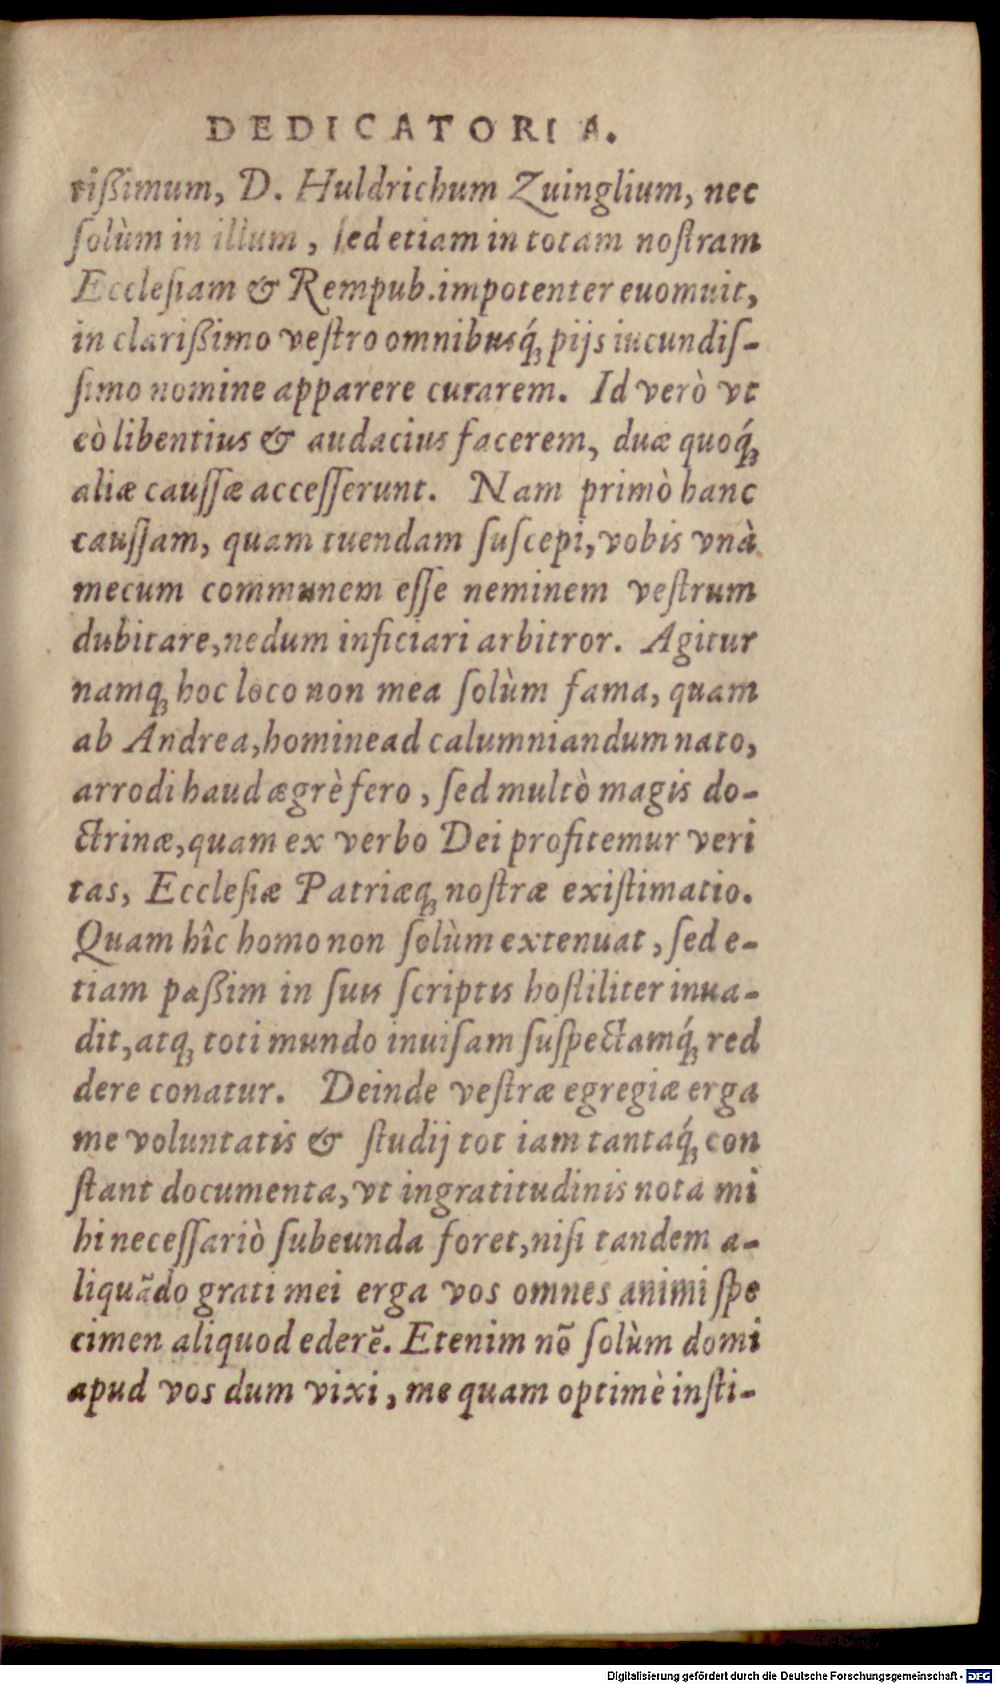 DEDICATORIA.
rißimum, D. Huldrichum Zuinglium, nec
ſolùm in illum, ſed etiam in totam noſtram
Eccleſiam & Rempub. impotenter euomuit,
in clarißimo veſtro omnibusq́; pijs iucundiſ-
ſimo nomine apparere curarem. Id verò vt
eò libentius & audacius facerem, duæ quoq́;
aliæ cauſſæ acceſſerunt. Nam primò hanc
cauſſam, quam tuendam ſuſcepi, vobis vnà
mecum communem eſſe neminem veſtrum
dubitare, nedum inficiari arbitror. Agitur
namq; hoc loco non mea ſolùm fama, quam
ab Andrea, homine ad calumniandum nato,
arrodi haud ægrè fero, ſed multò magis do-
ctrinæ, quam ex verbo Dei profitemur veri
tas, Eccleſiæ Patriæq; noſtræ exiſtimatio.
Quam hîc homo non ſolùm extenuat, ſed e-
tiam paßim in ſuis ſcriptis hoſtiliter inua-
dit, atq; toti mundo inuiſam ſuſpectamq́; red
dere conatur. Deinde veſtræ egregiæ erga
me voluntatis & ſtudij tot iam tantaq́; con
ſtant documenta, vt ingratitudinis nota mi
hi neceſſariò ſubeunda foret, niſi tandem a-
liquãdo grati mei erga vos omnes animi ſpe
cimen aliquod ederẽ. Etenim nõ ſolùm domi
apud vos dum vixi, me quam optimè inſti-
Digitalisierung gefördert durch die Deutsche Forschungsgemeinschaft - DFG